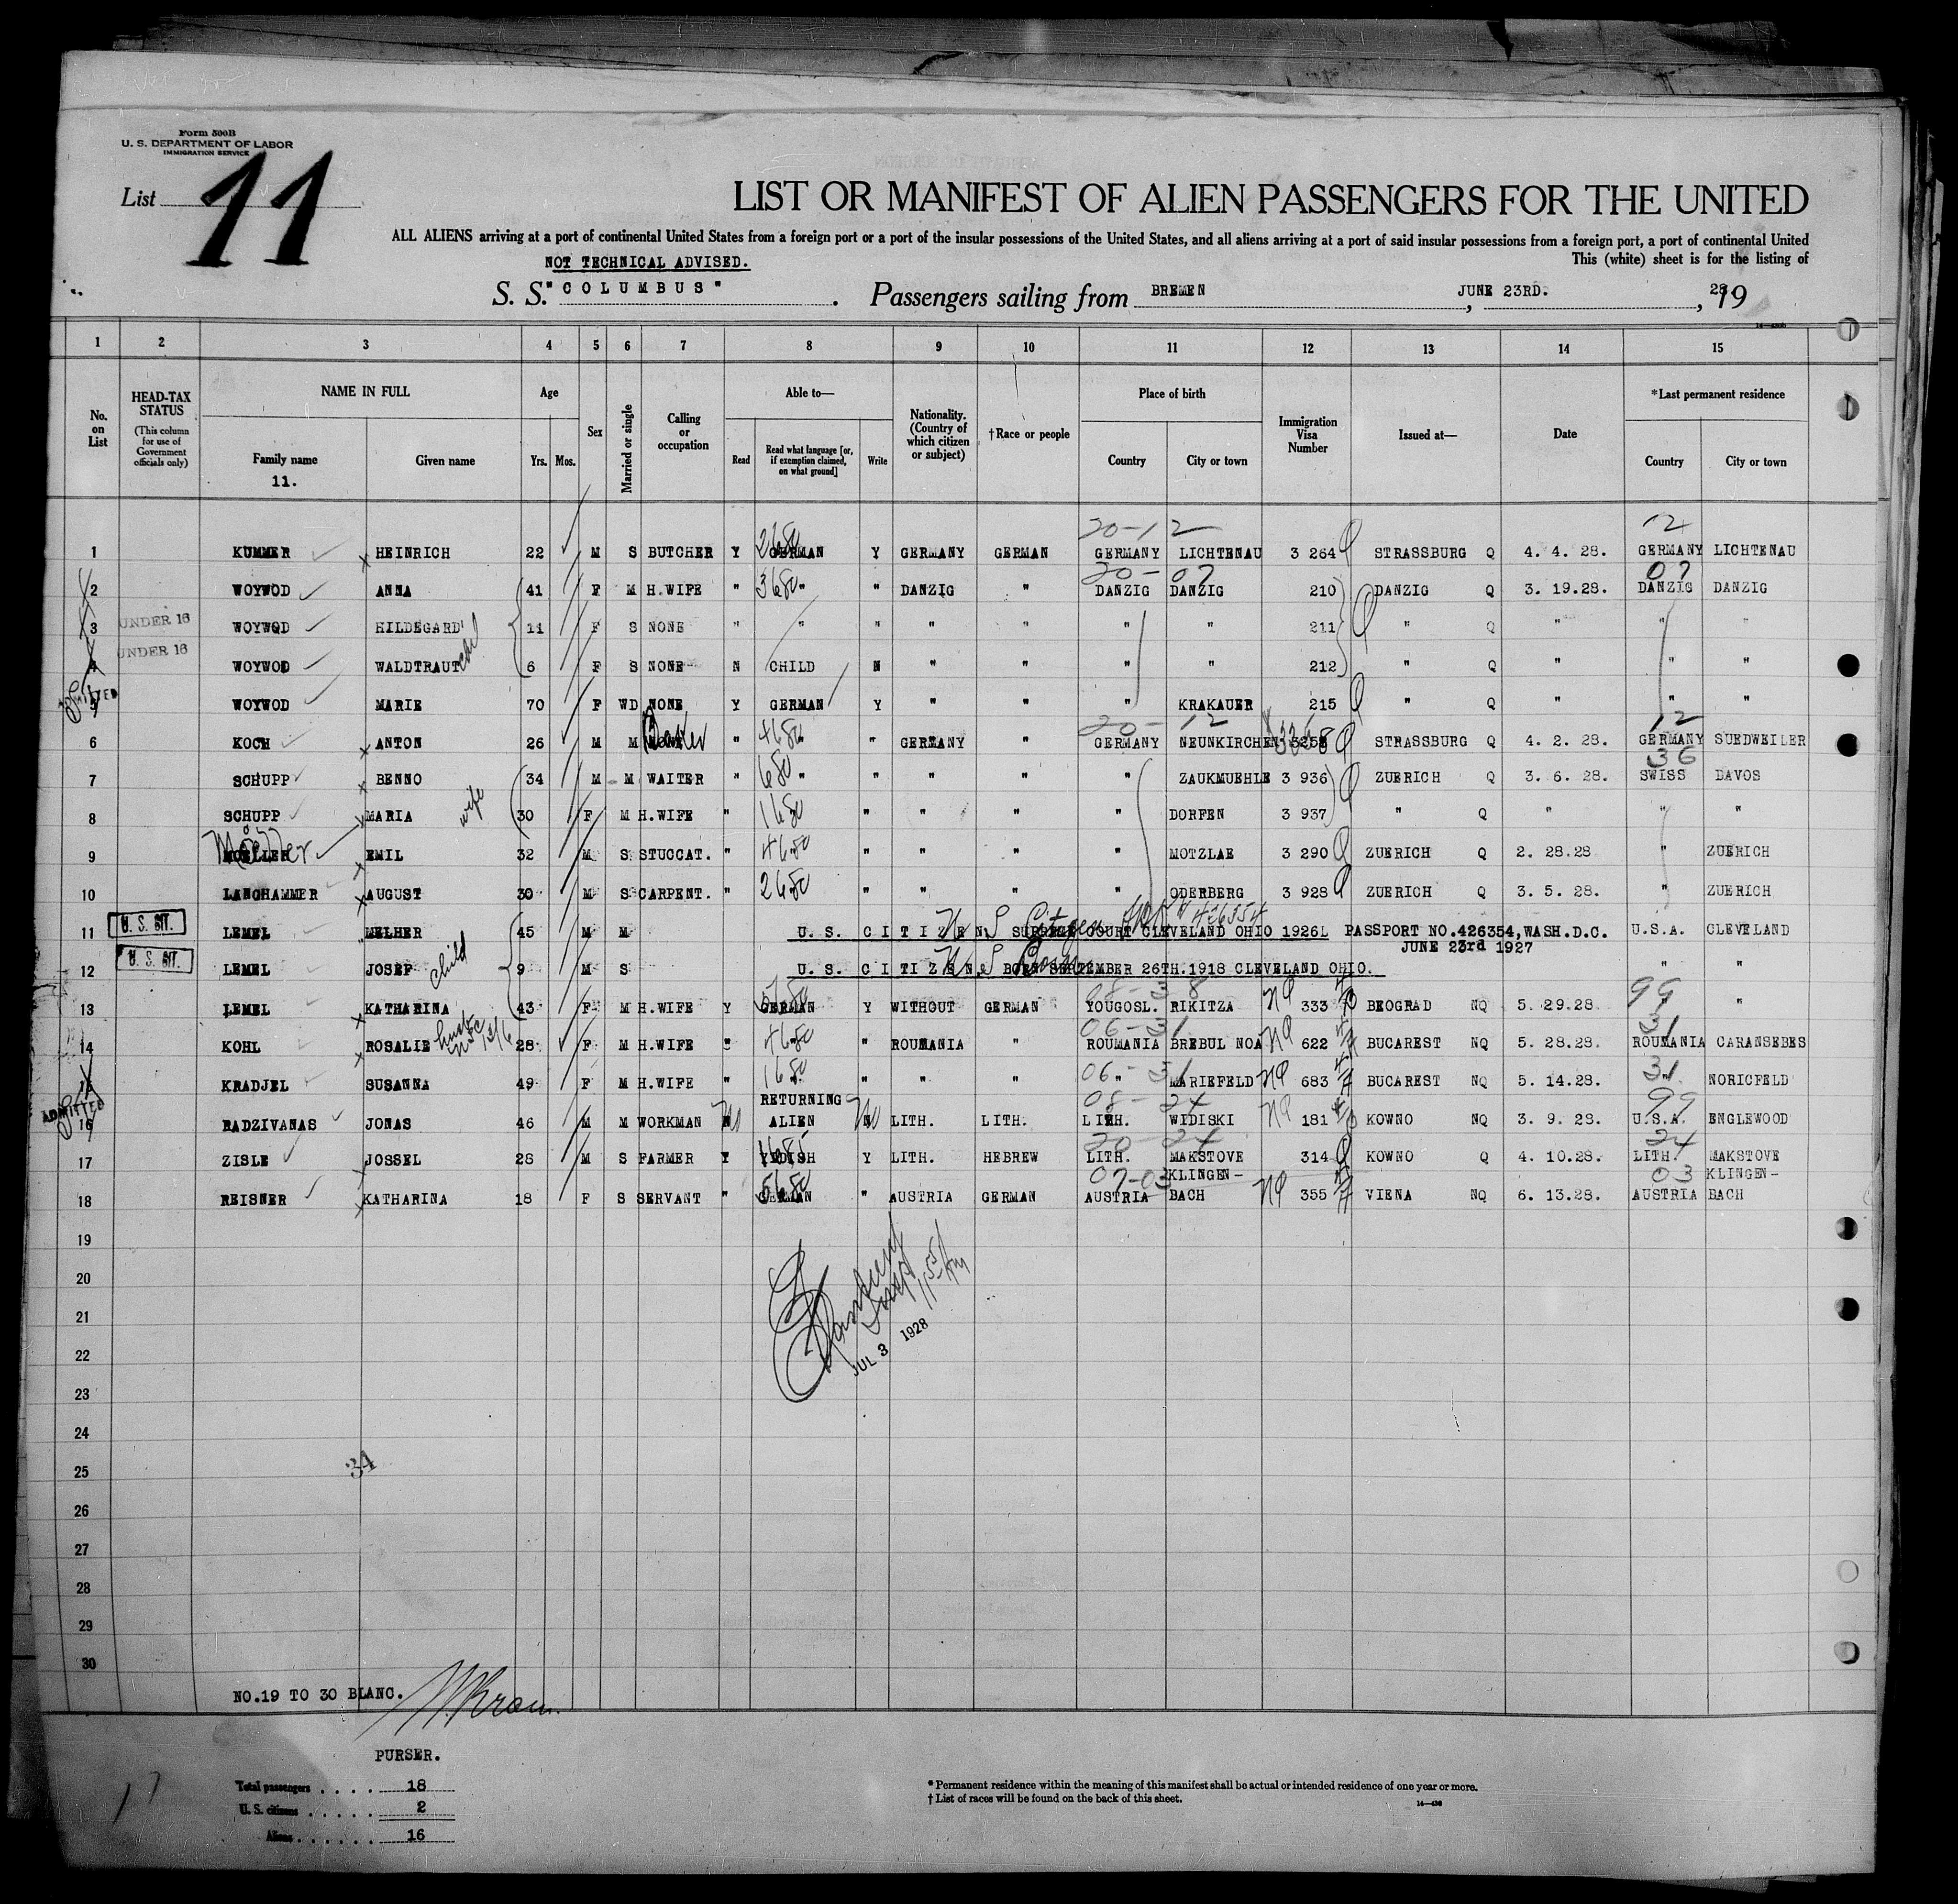 Form 500B
U. S. DEPARTMENT OF LABOR
IMMIGRATION SERVICE
List 11
LIST OR MANIFEST OF ALIEN PASSENGERS FOR THE UNITED
ALL ALIENS arriving at a port of continental United States from a foreign port or a port of the insular possessions of the United States, and all aliens arriving at a port of said insular possessions from a foreign port, a port of continental United
NOT TECHNICAL ADVISED. This (white) sheet is for the listing of
S. S. "COLUMBUS" . Passengers sailing from BREMEN , JUNE 23RD. , 1928
1 2 3 4 5 6 7 8 9 10 11 12 13 14 15
No. on List
HEAD-TAX STATUS
(This column for use of Government officials only)
NAME IN FULL
Family name
11.
Given name
Age
Yrs. Mos.
Sex
Married or single
Calling or occupation
Able to—
Read
Read what language [or, if exemption claimed, on what ground]
Write
Nationality. (Country of which citizen or subject)
†Race or people
Place of birth
Country
City or town
Immigration Visa Number
Issued at—
Date
*Last permanent residence
Country
City or town
20-12 12
1 KUMMER HEINRICH 22 M S BUTCHER Y GERMAN Y GERMANY GERMAN GERMANY LICHTENAU 3 264 STRASSBURG Q 4. 4. 28. GERMANY LICHTENAU
20-07 07
2 WOYWOD ANNA 41 F M H.WIFE " " " DANZIG " DANZIG DANZIG 210 DANZIG Q 3. 19.28. DANZIG DANZIG
3 UNDER 16 WOYWOD HILDEGARD 11 F S NONE " " " " " " " 211 " Q " " "
4 UNDER 16 WOYWOD WALDTRAUT 6 F S NONE N CHILD N " " " " 212 " Q " " "
5 ADMITTED WOYWOD MARIE 70 F WD NONE Y GERMAN Y " " " KRAKAUER 215 " Q " " "
20-12 12
6 KOCH ANTON 26 M M " " " GERMANY " GERMANY NEUNKIRCHEN STRASSBURG Q 4. 2. 28. GERMANY SUEDWEILER
36
7 SCHUPP BENNO 34 M M WAITER " " " " " " ZAUKMUEHLE 3 936 ZUERICH Q 3. 6. 28. SWISS DAVOS
8 SCHUPP MARIA wife 30 F M H.WIFE " " " " " DORFEN 3 937 " Q " " "
9 MOELLER EMIL 32 M S STUCCAT. " " " " " MOTZLAE 3 290 ZUERICH Q 2. 28.28 " ZUERICH
10 LANGHAMMER AUGUST 30 M S CARPENT. " " " " " ODERBERG 3 928 ZUERICH Q 3. 5. 28. " ZUERICH
11 U. S. CIT. LEMEL MELHER 45 M M U. S. CITIZEN, SUPREME COURT CLEVELAND OHIO 1926 PASSPORT NO.426354,WASH.D.C. U.S.A. CLEVELAND
JUNE 23rd 1927
12 U. S. CIT. LEMEL JOSEF child 9 M S U. S. CITIZEN, BORN SEPTEMBER 26TH.1918 CLEVELAND OHIO. " "
99
13 LEMEL KATHARINA 43 F M H.WIFE Y GERMAN Y WITHOUT GERMAN YOUGOSL. RIKITZA NQ 333 BEOGRAD NQ 5. 29.28. " "
06-31 31
14 KOHL ROSALIE 28 F M H.WIFE " " " ROUMANIA " ROUMANIA BREBUL NOA NQ 622 BUCAREST NQ 5. 28.28. ROUMANIA CARANSEBES
06-31 31
15 KRADJEL SUSANNA 49 F M H.WIFE " " " " " " MARIEFELD NQ 683 BUCAREST NQ 5. 14.28. " NORICFELD
RETURNING 08-24 99
16 ADMITTED RADZIVANAS JONAS 46 M M WORKMAN No ALIEN No LITH. LITH. LITH. WIDISKI NQ 181 KOWNO NQ 3. 9. 28. U.S.A. ENGLEWOOD
20-24 24
17 ZISLE JOSSEL 28 M S FARMER Y YIDISH Y LITH. HEBREW LITH. MAKSTOVE 314 KOWNO Q 4. 10.28. LITH. MAKSTOVE
07-03 KLINGEN- 03 KLINGEN-
18 REISNER KATHARINA 18 F S SERVANT " GERMAN " AUSTRIA GERMAN AUSTRIA BACH NQ 355 VIENA NQ 6. 13.28. AUSTRIA BACH
19
20
21
JUL 3 1928
22
23
24
25 34
26
27
28
29
30
NO.19 TO 30 BLANC.
PURSER.
Total passengers . . . . 18
U. S. citizens . . . . . 2
Aliens . . . . . . 16
* Permanent residence within the meaning of this manifest shall be actual or intended residence of one year or more.
† List of races will be found on the back of this sheet.